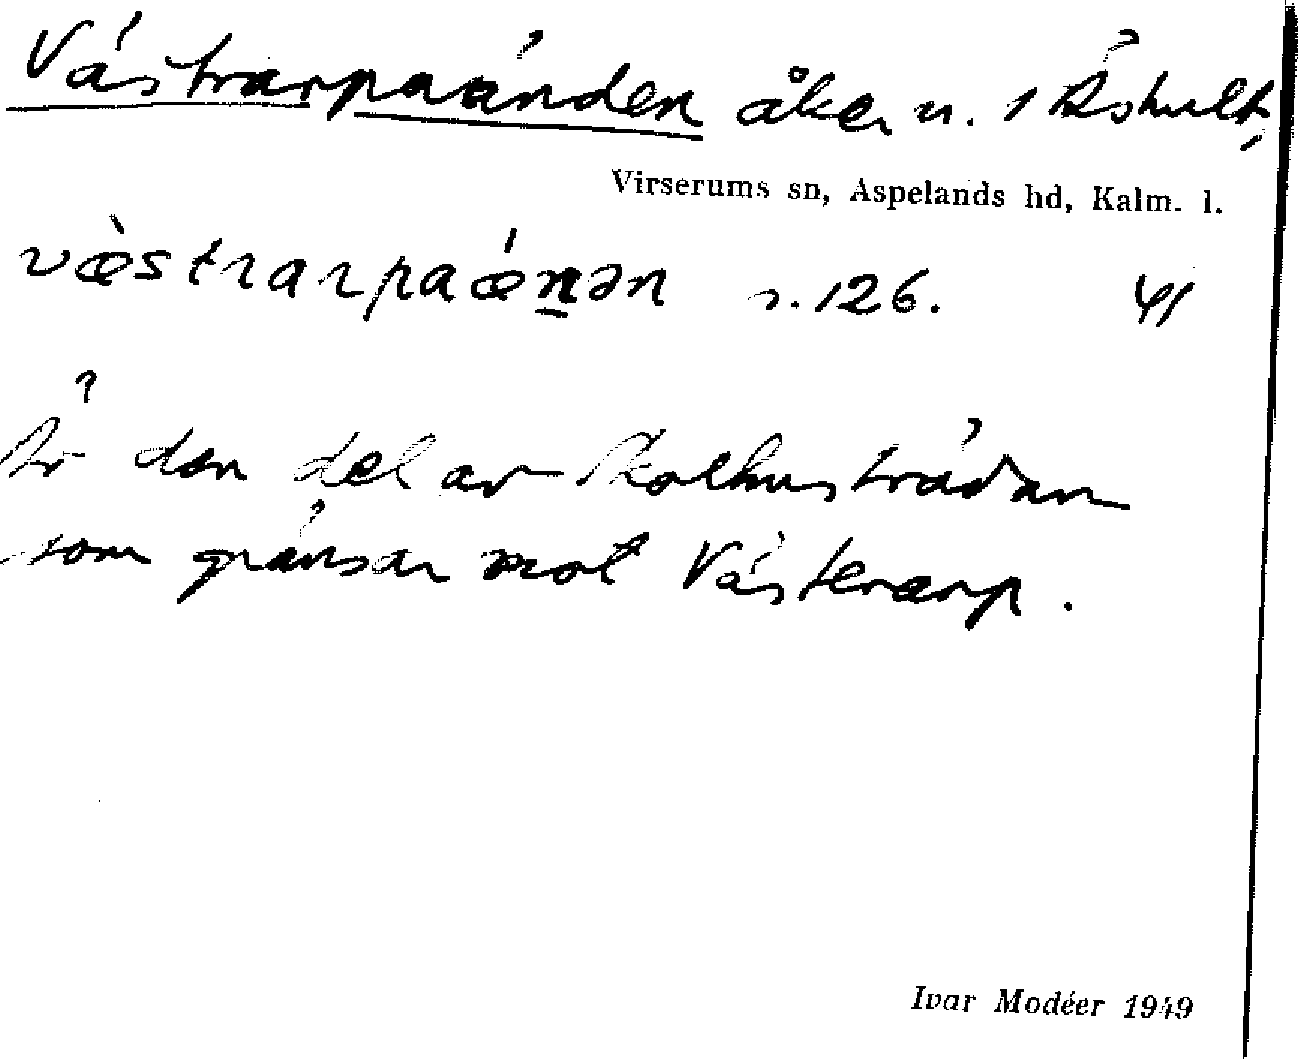 Västrarpaänden åker n. 1 Äshult,
Virserums sn, Aspelands hd, Kalm. l.
væ̀strarpaǽnən s. 126. 41
Är den del av Skolhusträdan
som gränsar mot Västerarp.
Ivar Modéer 1949